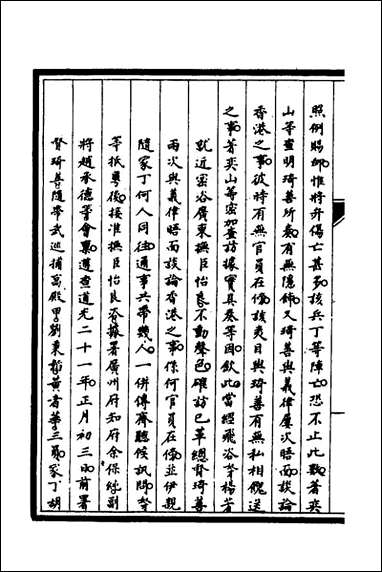 照例賜卹惟將弁傷亡甚多該兵丁等陣亡恐不止此數著奕
山等查明琦善所奏有無隱飾又琦善與義律屢次晤面談論
香港之事彼時有無官員在傍該夷目與琦善有無私相餽送
之事著奕山等密加查訪據實具奏等因欽此當經飛咨芳楊著
就近密咨廣東撫臣怡良不動聲色確訪已革總督琦善
兩次與義律晤面談論香港之事係何官員在傍並伊親
隨家丁何人同往通事共帶幾人一併傳齊聽候訊問等
等抵粵後接准撫臣怡良咨據署廣州府知府余保純副
將趙承德等會稟遵查道光二十一年正月初三日前署
督琦善隨帶武巡捕萬殿甲劉東韜黃者華三員家丁胡